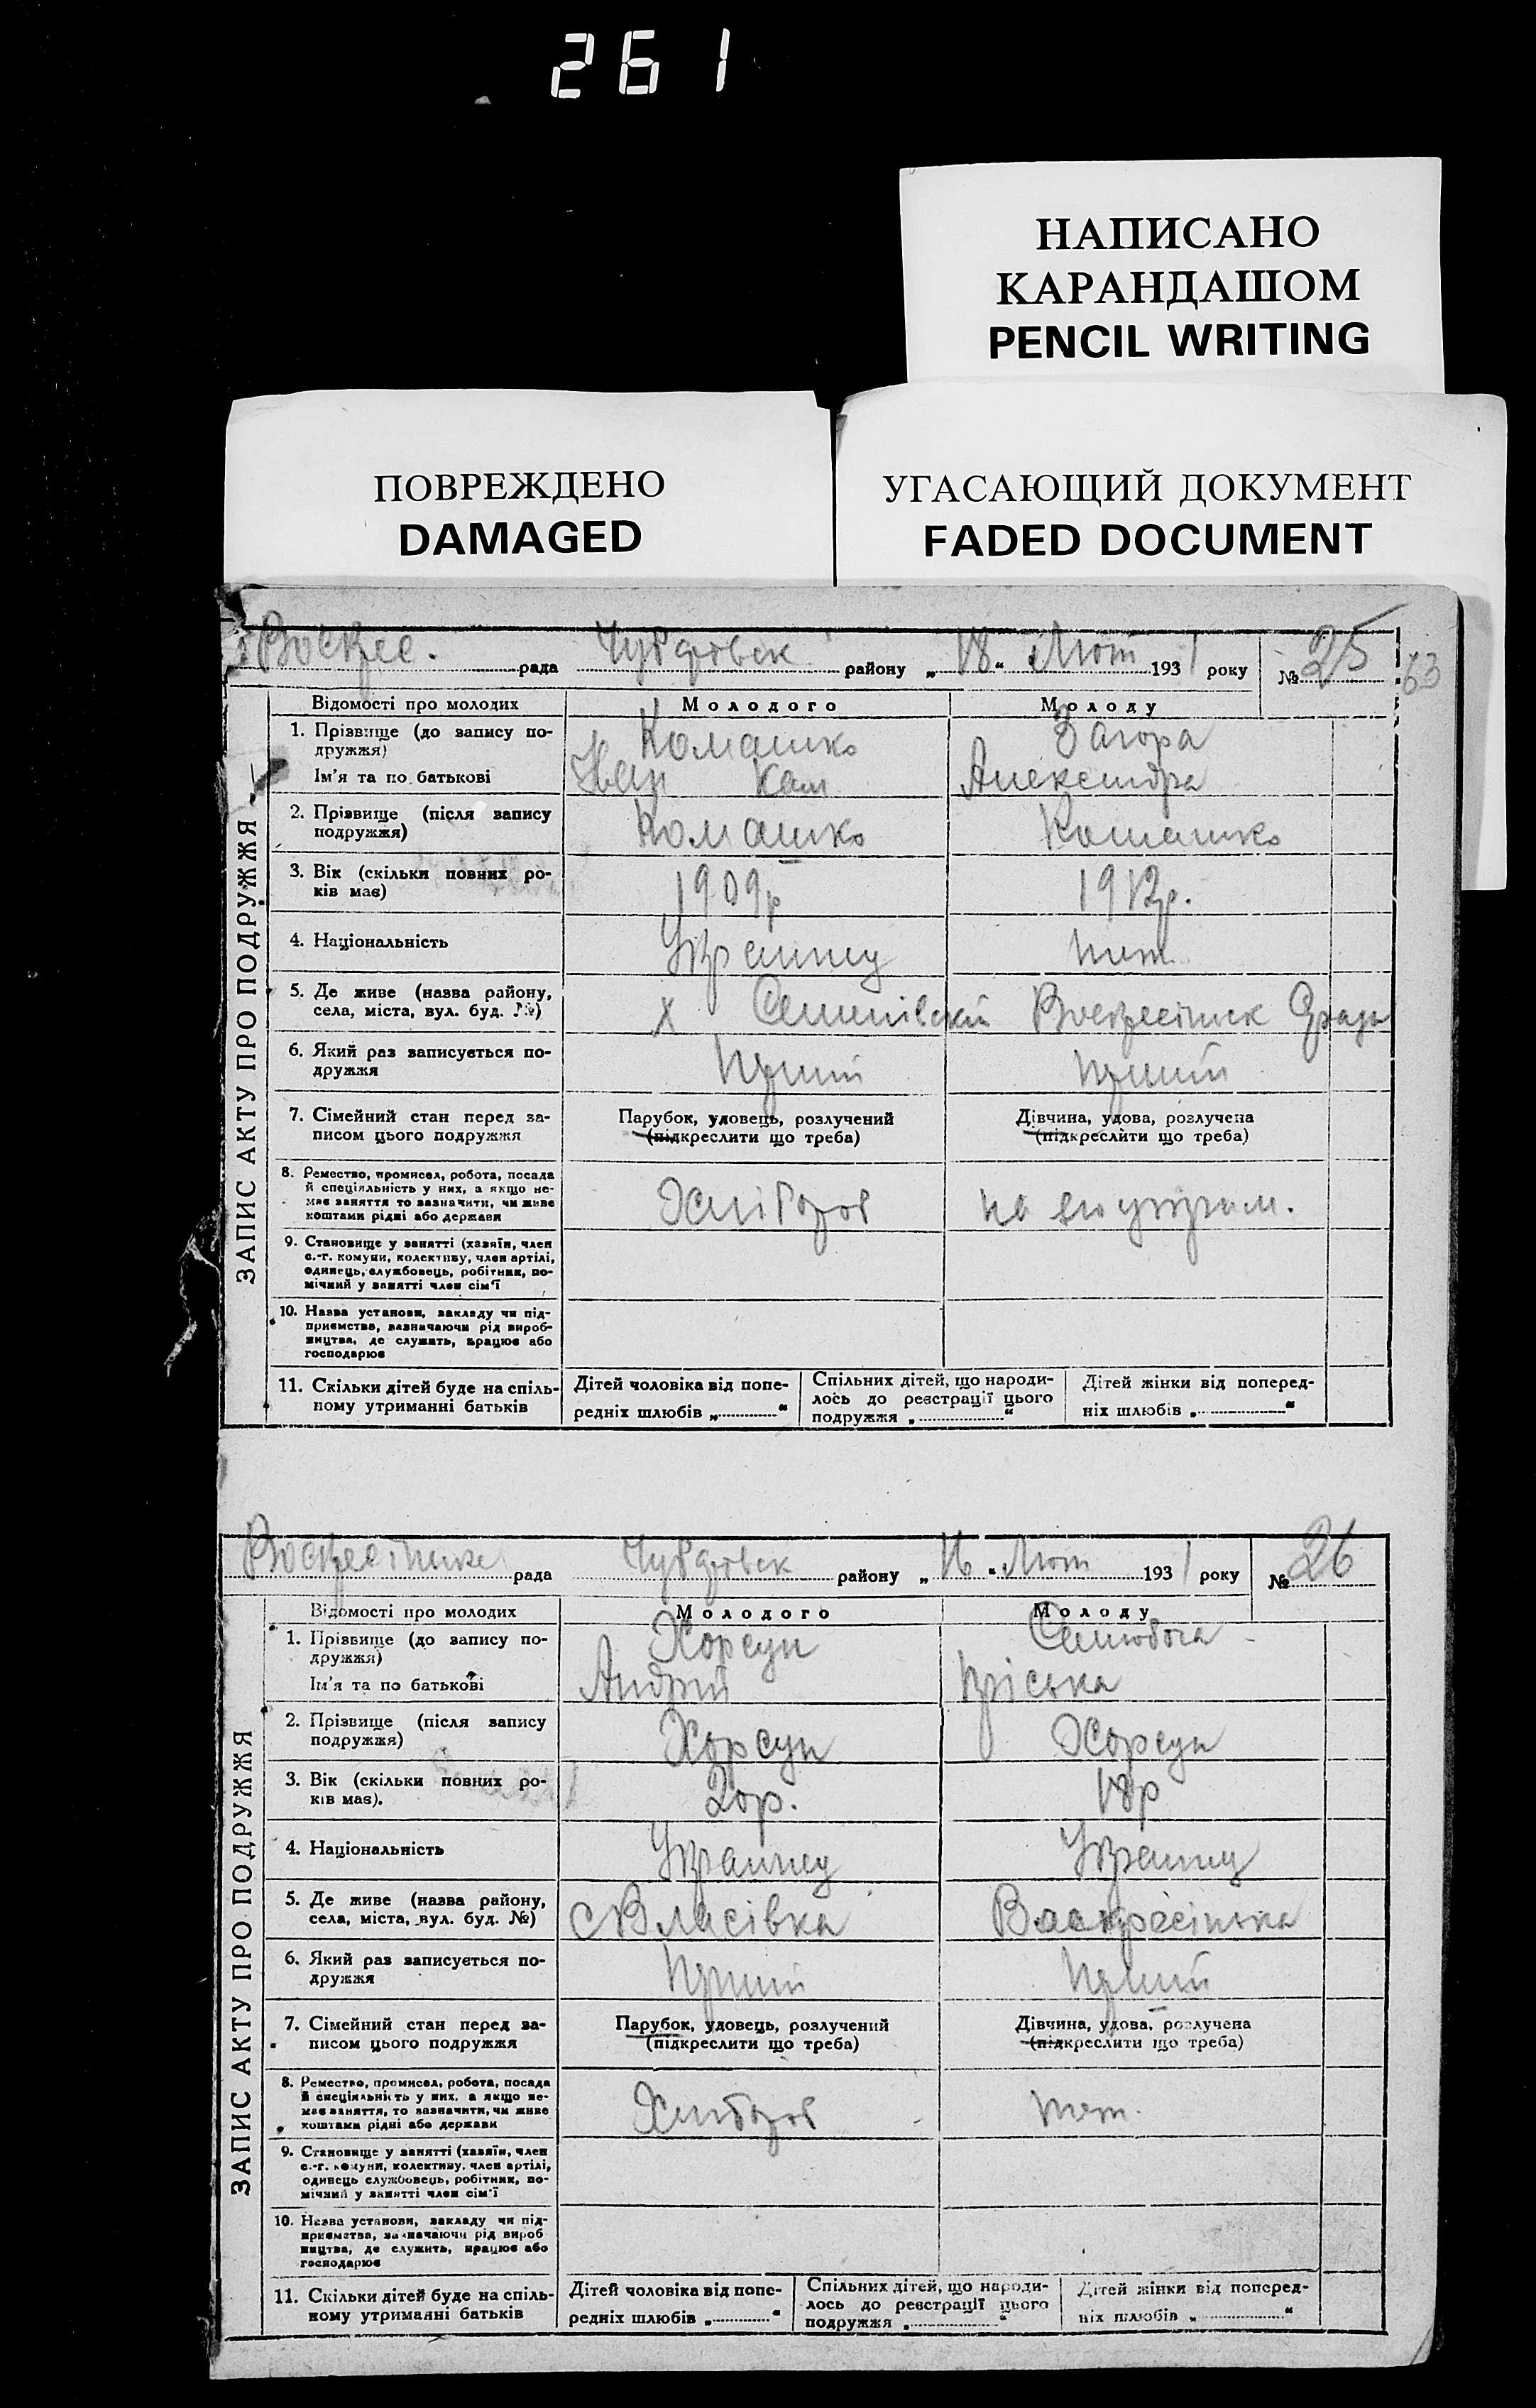 261
НАПИСАНО
КАРАНДАШОМ
PENCIL WRITING
ПОВРЕЖДЕНО
DAMAGED
УГАСАЮЩИЙ ДОКУМЕНТ
FADED DOCUMENT
Воскрес. рада району „18“ Лют 1931 року № 25
63
ЗАПИС АКТУ ПРО ПОДРУЖЖЯ
Відомості про молодих Молодого Молоду
1. Прізвище (до запису по-
дружжя) Комашко Загора
Ім'я та по батькові Іван Александра
2. Прізвище (після запису
подружжя) Комашко Комашко
3. Вік (скільки повних ро-
ків має) 1909р 1912р.
4. Національність Украинец
5. Де живе (назва району,
села, міста, вул. буд. №) х
6. Який раз записується по-
дружжя
7. Сімейний стан перед за-
писом цього подружжя
Парубок, удовець, розлучений
(підкреслити що треба)
Дівчина, удова, розлучена
(підкреслити що треба)
8. Ремество, промисел, робота, посада
й спеціяльність у них, а якщо не-
має заняття то зазначити, чи живе
коштами рідні або держави
Хлібороб
9. Становище у занятті (хазяїн, член
с.-г. комуни, колективу, член артілі,
одинець, службовець, робітник, по-
мічний у занятті член сім'ї
10. Назва установи, закладу чи під-
приємства, зазначаючи рід вироб-
ництва, де служить, працює або
господарює
11. Скільки дітей буде на спіль-
ному утриманні батьків
Дітей чоловіка від попе-
редніх шлюбів „ “
Спільних дітей, що народи-
лось до реєстрації цього
подружжя „ “
Дітей жінки від поперед-
ніх шлюбів „ “
рада району „16“ Лют 1931 року № 26
ЗАПИС АКТУ ПРО ПОДРУЖЖЯ
Відомості про молодих Молодого Молоду
1. Прізвище (до запису по-
дружжя) Хорсун
Ім'я та по батькові Андрій Пріська
2. Прізвище (після запису
подружжя) Хорсун Хорсун
3. Вік (скільки повних ро-
ків має). 20р. 18р
4. Національність Украинец Украинец
5. Де живе (назва району,
села, міста, вул. буд. №) с Власівка
6. Який раз записується по-
дружжя
7. Сімейний стан перед за-
писом цього подружжя
Парубок, удовець, розлучений
(підкреслити що треба)
Дівчина, удова, розлучена
(підкреслити що треба)
8. Ремество, промисел, робота, посада
й спеціяльність у них, а якщо не-
має заняття, то зазначити, чи живе
коштами рідні або держави
Хлібороб
9. Становище у занятті (хазяїн, член
с.-г. комуни, колективу, член артілі,
одинець службовець, робітник, по-
мічний у занятті член сім'ї
10. Назва установи, закладу чи під-
приємства, зазначаючи рід вироб
ництва, де служить, працює або
господарює
11. Скільки дітей буде на спіль-
ному утриманні батьків
Дітей чоловіка від попе-
редніх шлюбів „ “
Спільних дітей, що народи-
лось до реєстрації цього
подружжя „ “
Дітей жінки від поперед-
ніх шлюбів „ “